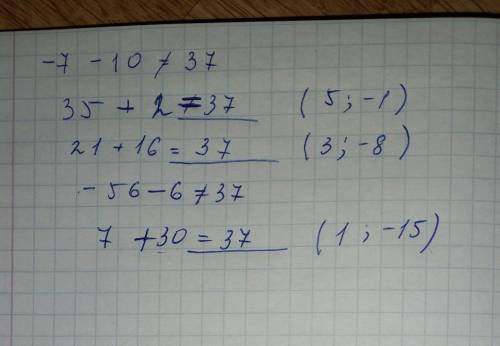 -7 - 10 ≠ 37
35 + 2 = 37 (5; -1)
21 + 16 = 37 (3; -8)
- 56 - 6 ≠ 37
7 + 30 = 37 (1; -15)